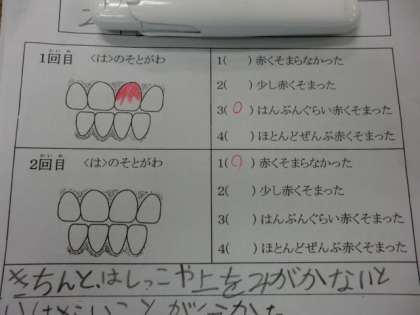 1回目 <は>のそとがわ
かいめ
1( ) 赤くそまらなかった
2( ) 少し赤くそまった
3(○) はんぶんぐらい赤くそまった
4( ) ほとんどぜんぶ赤くそまった
2回目 <は>のそとがわ
かいめ
1(○) 赤くそまらなかった
2( ) 少し赤くそまった
3( ) はんぶんぐらい赤くそまった
4( ) ほとんどぜんぶ赤くそまった
きちんと、はしっこや上をみがかないと
いけないことが分かった